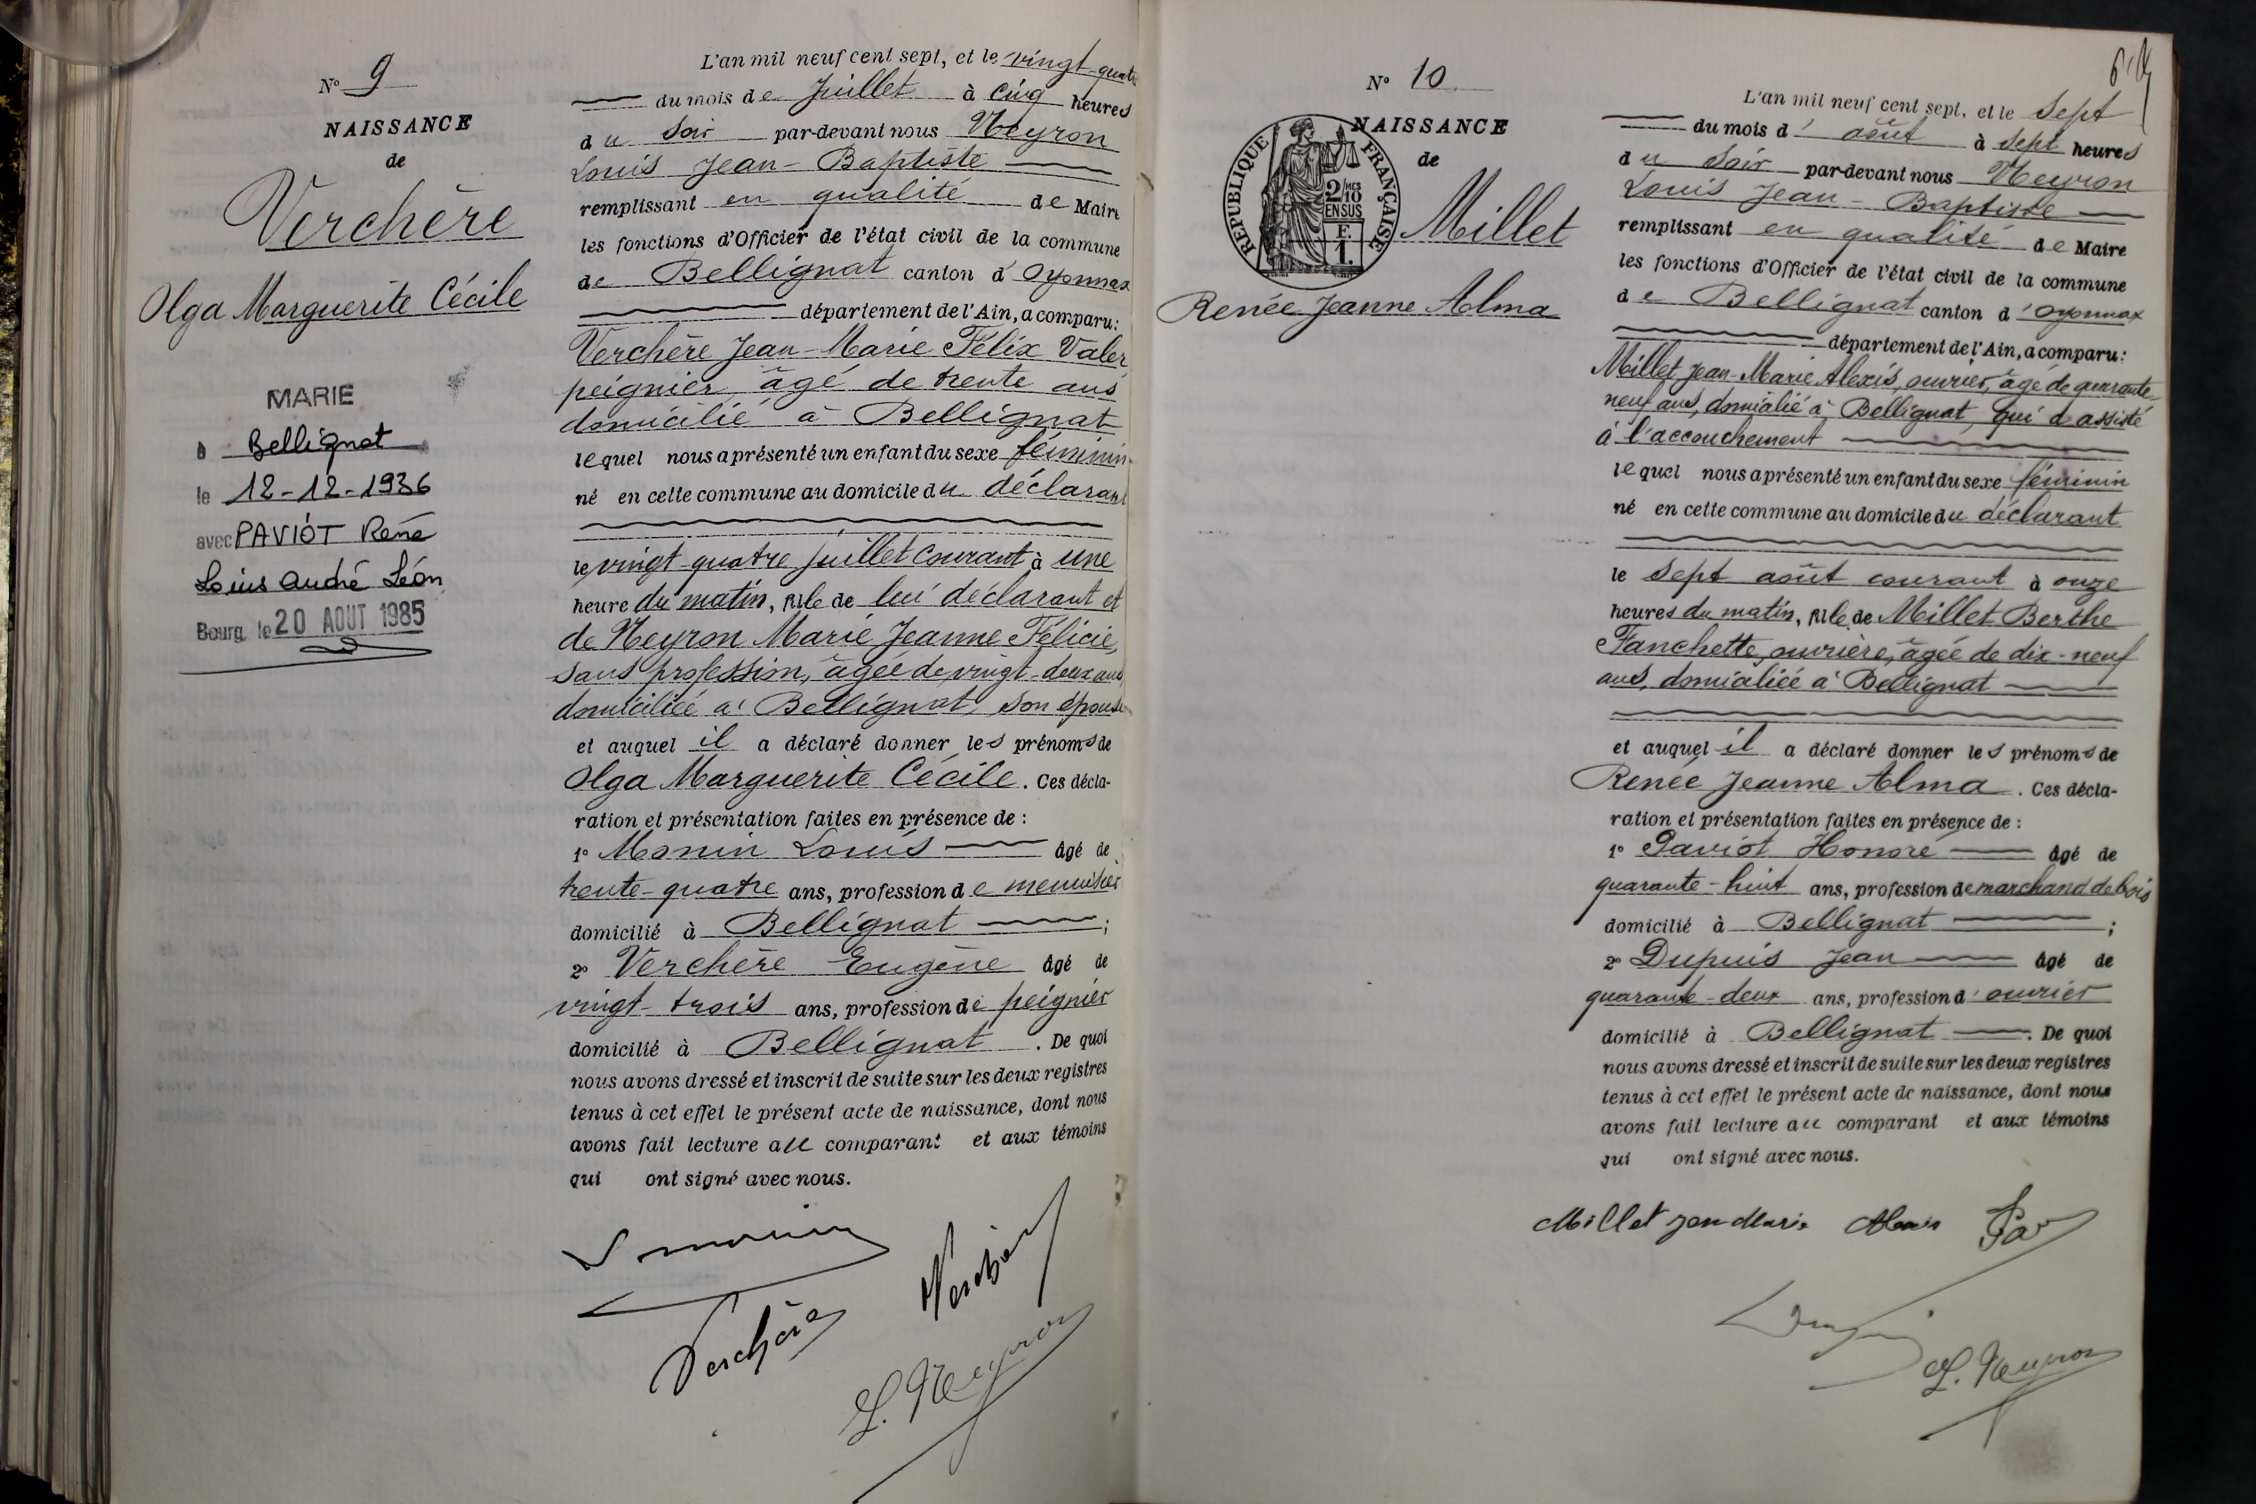 N° 9
NAISSANCE
de
Verchère
Olga Marguerite Cécile
MARIE
à Bellignat
le 12-12-1936
avec PAVIOT René
Louis André Léon
Bourg, le 20 AOUT 1985
L'an mil neuf cent sept, et le vingt-quatre
du mois de Juillet à cinq heures
du soir par-devant nous Neyron
Louis Jean-Baptiste
remplissant en qualité de Maire
les fonctions d'Officier de l'état civil de la commune
de Bellignat canton d'Oyonnax
département de l'Ain, a comparu:
Verchère Jean-Marie Félix Valer
peignier, âgé de trente ans
domicilié à Bellignat
lequel nous a présenté un enfant du sexe féminin
né en cette commune au domicile du déclarant
le vingt-quatre juillet courant à une
heure du matin, fille de lui déclarant et
de Neyron Marie Jeanne Félicie,
sans profession, âgée de vingt-deux ans
domiciliée à Bellignat, son épouse
et auquel il a déclaré donner les prénoms de
Olga Marguerite Cécile. Ces décla-
ration et présentation faites en présence de :
1° Monin Louis âgé de
trente-quatre ans, profession de menuisier
domicilié à Bellignat ;
2° Verchère Eugène âgé de
vingt-trois ans, profession de peignier
domicilié à Bellignat. De quoi
nous avons dressé et inscrit de suite sur les deux registres
tenus à cet effet le présent acte de naissance, dont nous
avons fait lecture au comparant et aux témoins
qui ont signé avec nous.
L monin
Verchère Verchère
L. Neyron
N° 10
NAISSANCE
de
Millet
Renée Jeanne Alma
RÉPUBLIQUE FRANÇAISE
2/10 MES
EN SUS
F.
1.
L'an mil neuf cent sept, et le sept
du mois d'août à sept heures
du soir par-devant nous Neyron
Louis Jean-Baptiste
remplissant en qualité de Maire
les fonctions d'Officier de l'état civil de la commune
de Bellignat canton d'Oyonnax
département de l'Ain, a comparu:
Millet Jean-Marie Alexis, ouvrier, âgé de quarante-
neuf ans, domicilié à Bellignat, qui a assisté
à l'accouchement
lequel nous a présenté un enfant du sexe féminin
né en cette commune au domicile du déclarant
le sept août courant à onze
heures du matin, fille de Millet Berthe
Fanchette, ouvrière, âgée de dix-neuf
ans, domiciliée à Bellignat
et auquel il a déclaré donner les prénoms de
Renée Jeanne Alma. Ces décla-
ration et présentation faites en présence de :
1° Paviot Honoré âgé de
quarante-huit ans, profession de marchand de bois
domicilié à Bellignat ;
2° Dupuis Jean âgé de
quarante-deux ans, profession d'ouvrier
domicilié à Bellignat. De quoi
nous avons dressé et inscrit de suite sur les deux registres
tenus à cet effet le présent acte de naissance, dont nous
avons fait lecture au comparant et aux témoins
qui ont signé avec nous.
Millet jean Marie Alexis Pav
L. Neyron